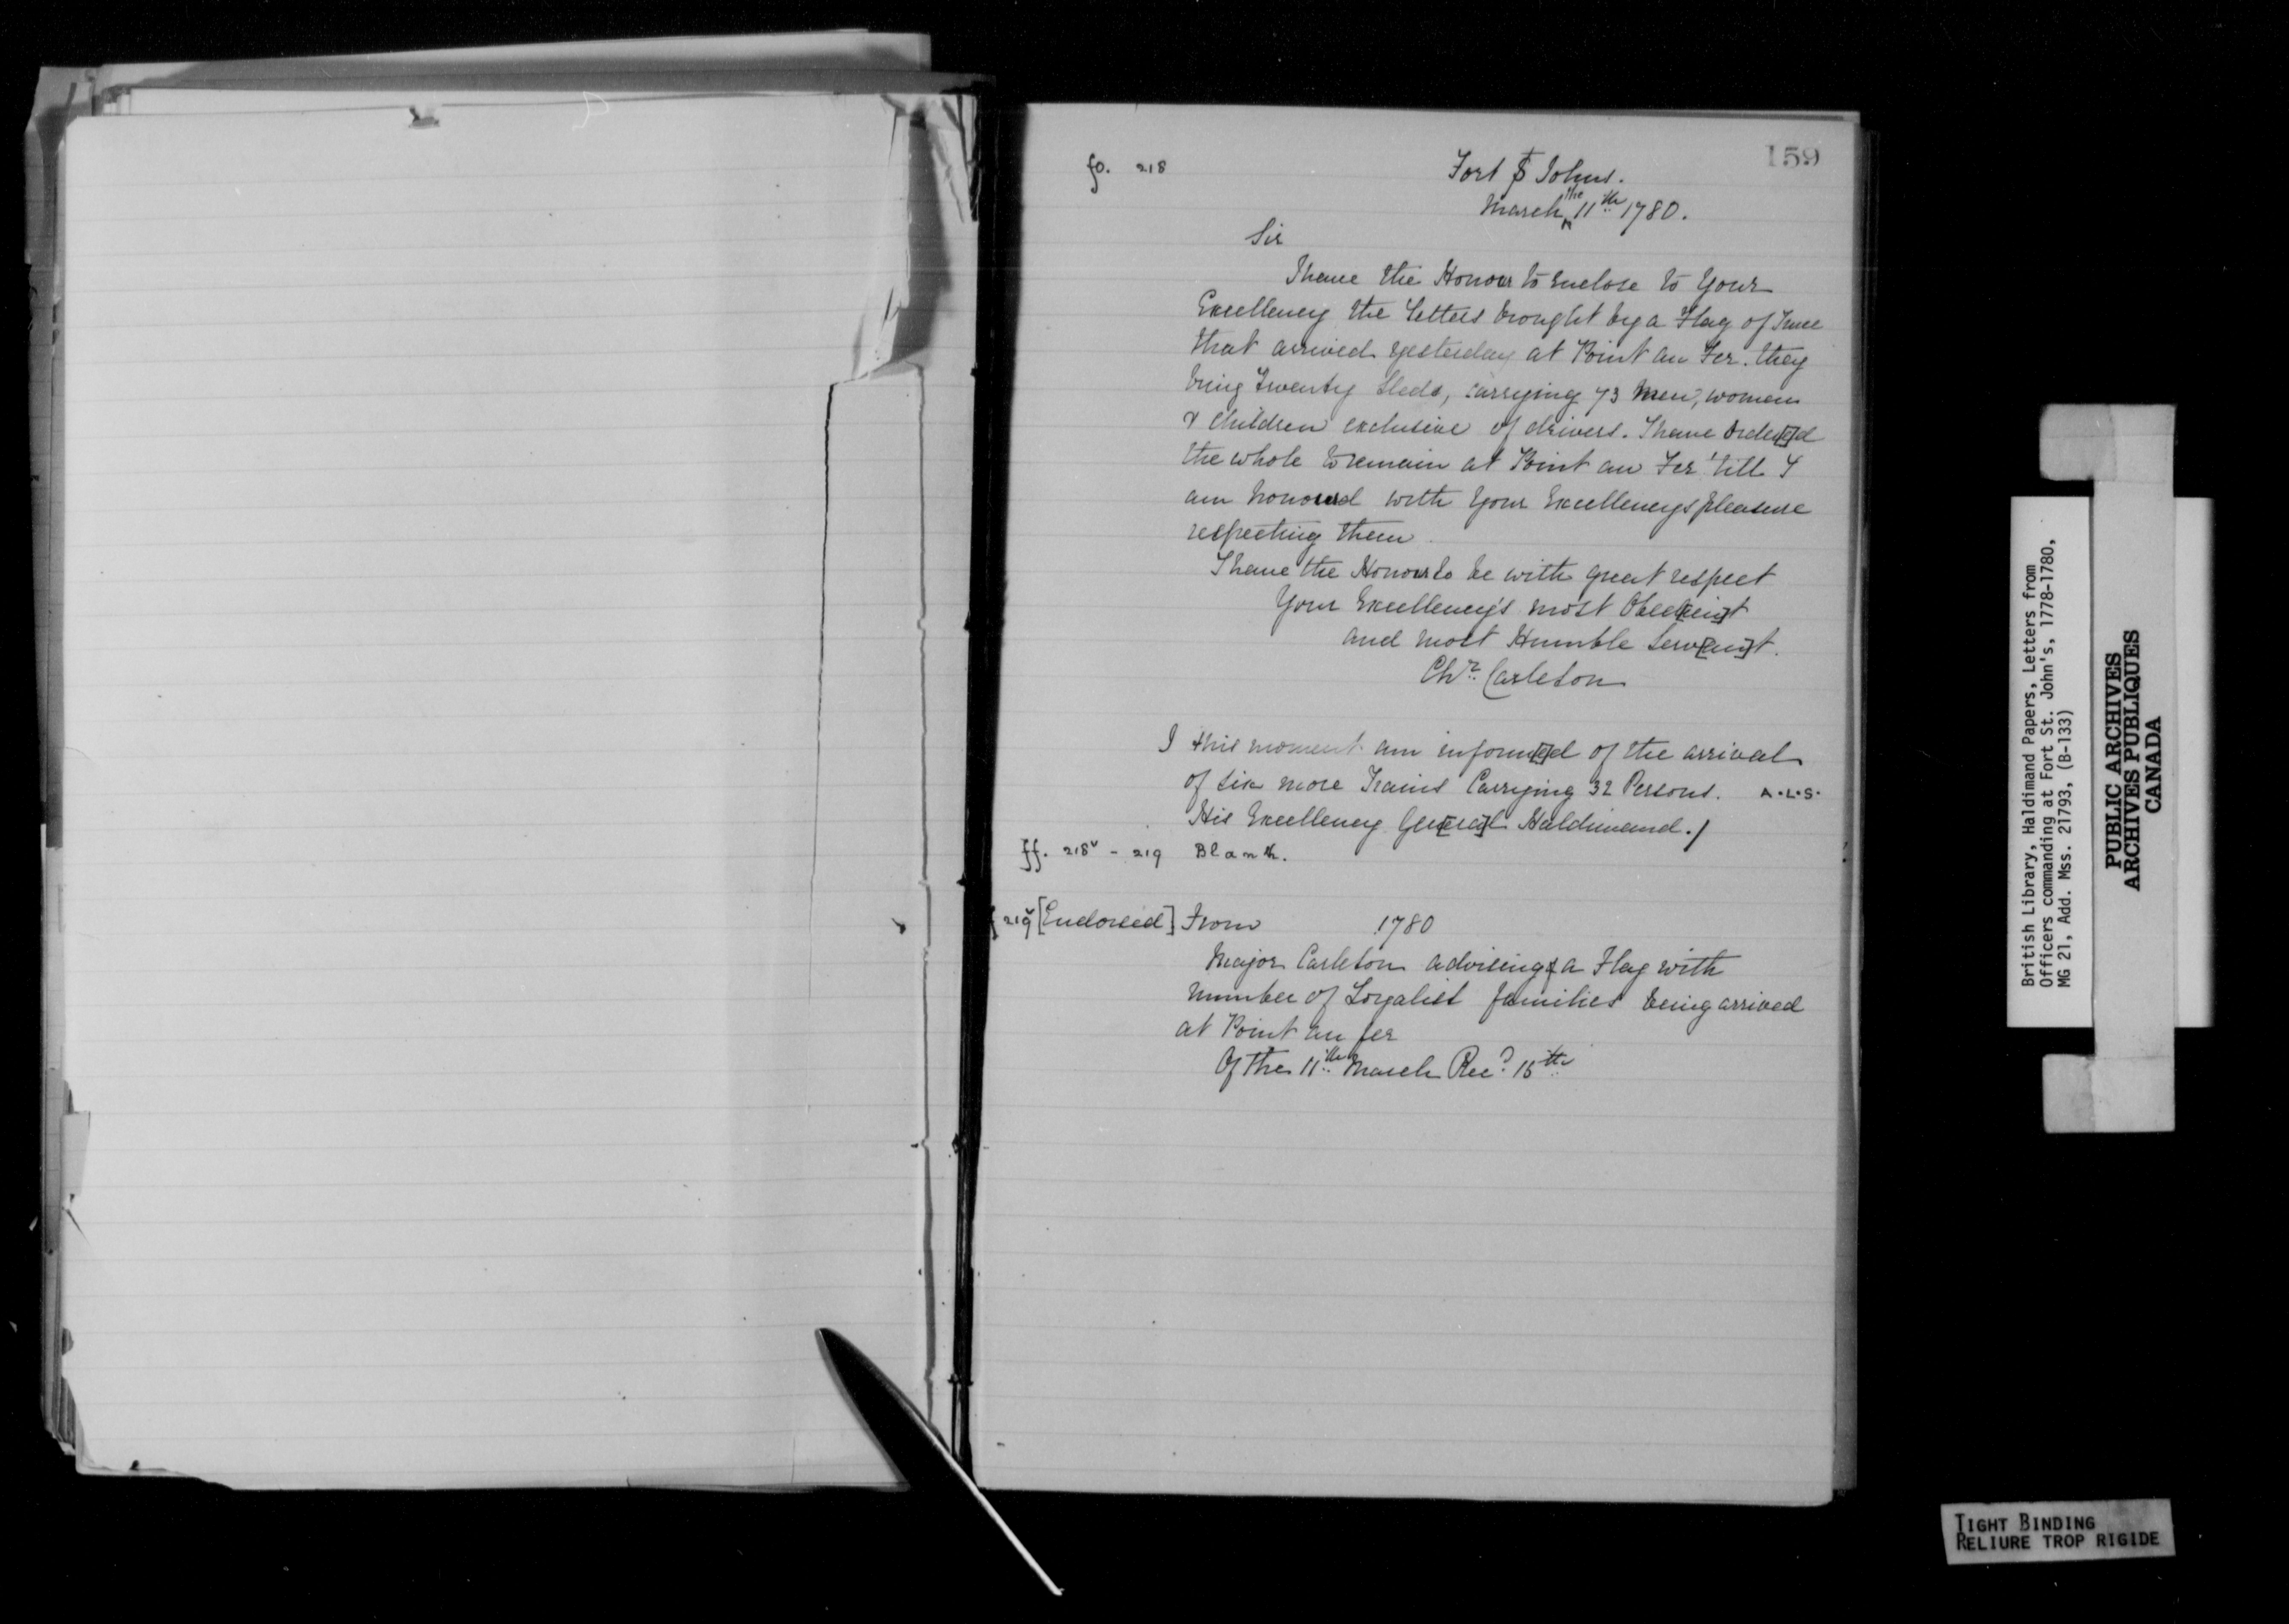 159
fo. 218
Fort St Johns.
March the 11th 1780.
Sir
I have the Honour to enclose to Your
Excellency the Letters brought by a Flag of Truce
that arrived yesterday at Point au Fer. they
bring Twenty Sleds, carrying 73 Men, women
& Children exclusive of drivers. I have Order[e]d
the whole to remain at Point au Fer 'till I
am honoured with Your Excellencys pleasure
respecting them.
I have the Honour to be with great respect
Your Excellency's most Obed[ien]t
and most Humble Serv[an]t.
Chr. Carleton
I this moment am inform[e]d of the arrival
of six more Trains Carrying 32 Persons. A.L.S.
His Excellency Gen[era]l Haldimand./
ff. 218v - 219 Blank.
f 219v [Endorsed] From 1780
Major Carleton advising of a Flag with
number of Loyalist families being arrived
at Point au fer
Of the 11th March Recd 15th
British Library, Haldimand Papers, Letters from
Officers commanding at Fort St. John's, 1778-1780,
MG 21, Add. Mss. 21793, (B-133)
PUBLIC ARCHIVES
ARCHIVES PUBLIQUES
CANADA
TIGHT BINDING
RELIURE TROP RIGIDE